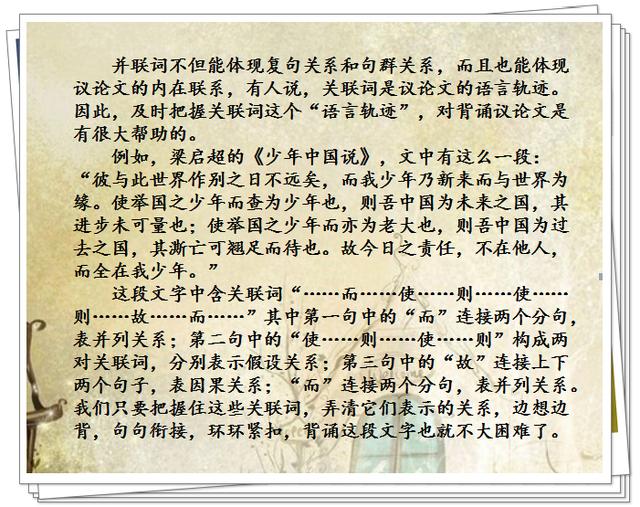 并联词不但能体现复句关系和句群关系，而且也能体现
议论文的内在联系，有人说，关联词是议论文的语言轨迹。
因此，及时把握关联词这个“语言轨迹”，对背诵议论文是
有很大帮助的。
例如，梁启超的《少年中国说》，文中有这么一段：
“彼与此世界作别之日不远矣，而我少年乃新来而与世界为
缘。使举国之少年而查为少年也，则吾中国为未来之国，其
进步未可量也；使举国之少年而亦为老大也，则吾中国为过
去之国，其澌亡可翘足而待也。故今日之责任，不在他人，
而全在我少年。”
这段文字中含关联词“……而……使……则……使……
则……故……而……”其中第一句中的“而”连接两个分句，
表并列关系；第二句中的“使……则……使……则”构成两
对关联词，分别表示假设关系；第三句中的“故”连接上下
两个句子，表因果关系；“而”连接两个分句，表并列关系。
我们只要把握住这些关联词，弄清它们表示的关系，边想边
背，句句衔接，环环紧扣，背诵这段文字也就不大困难了。